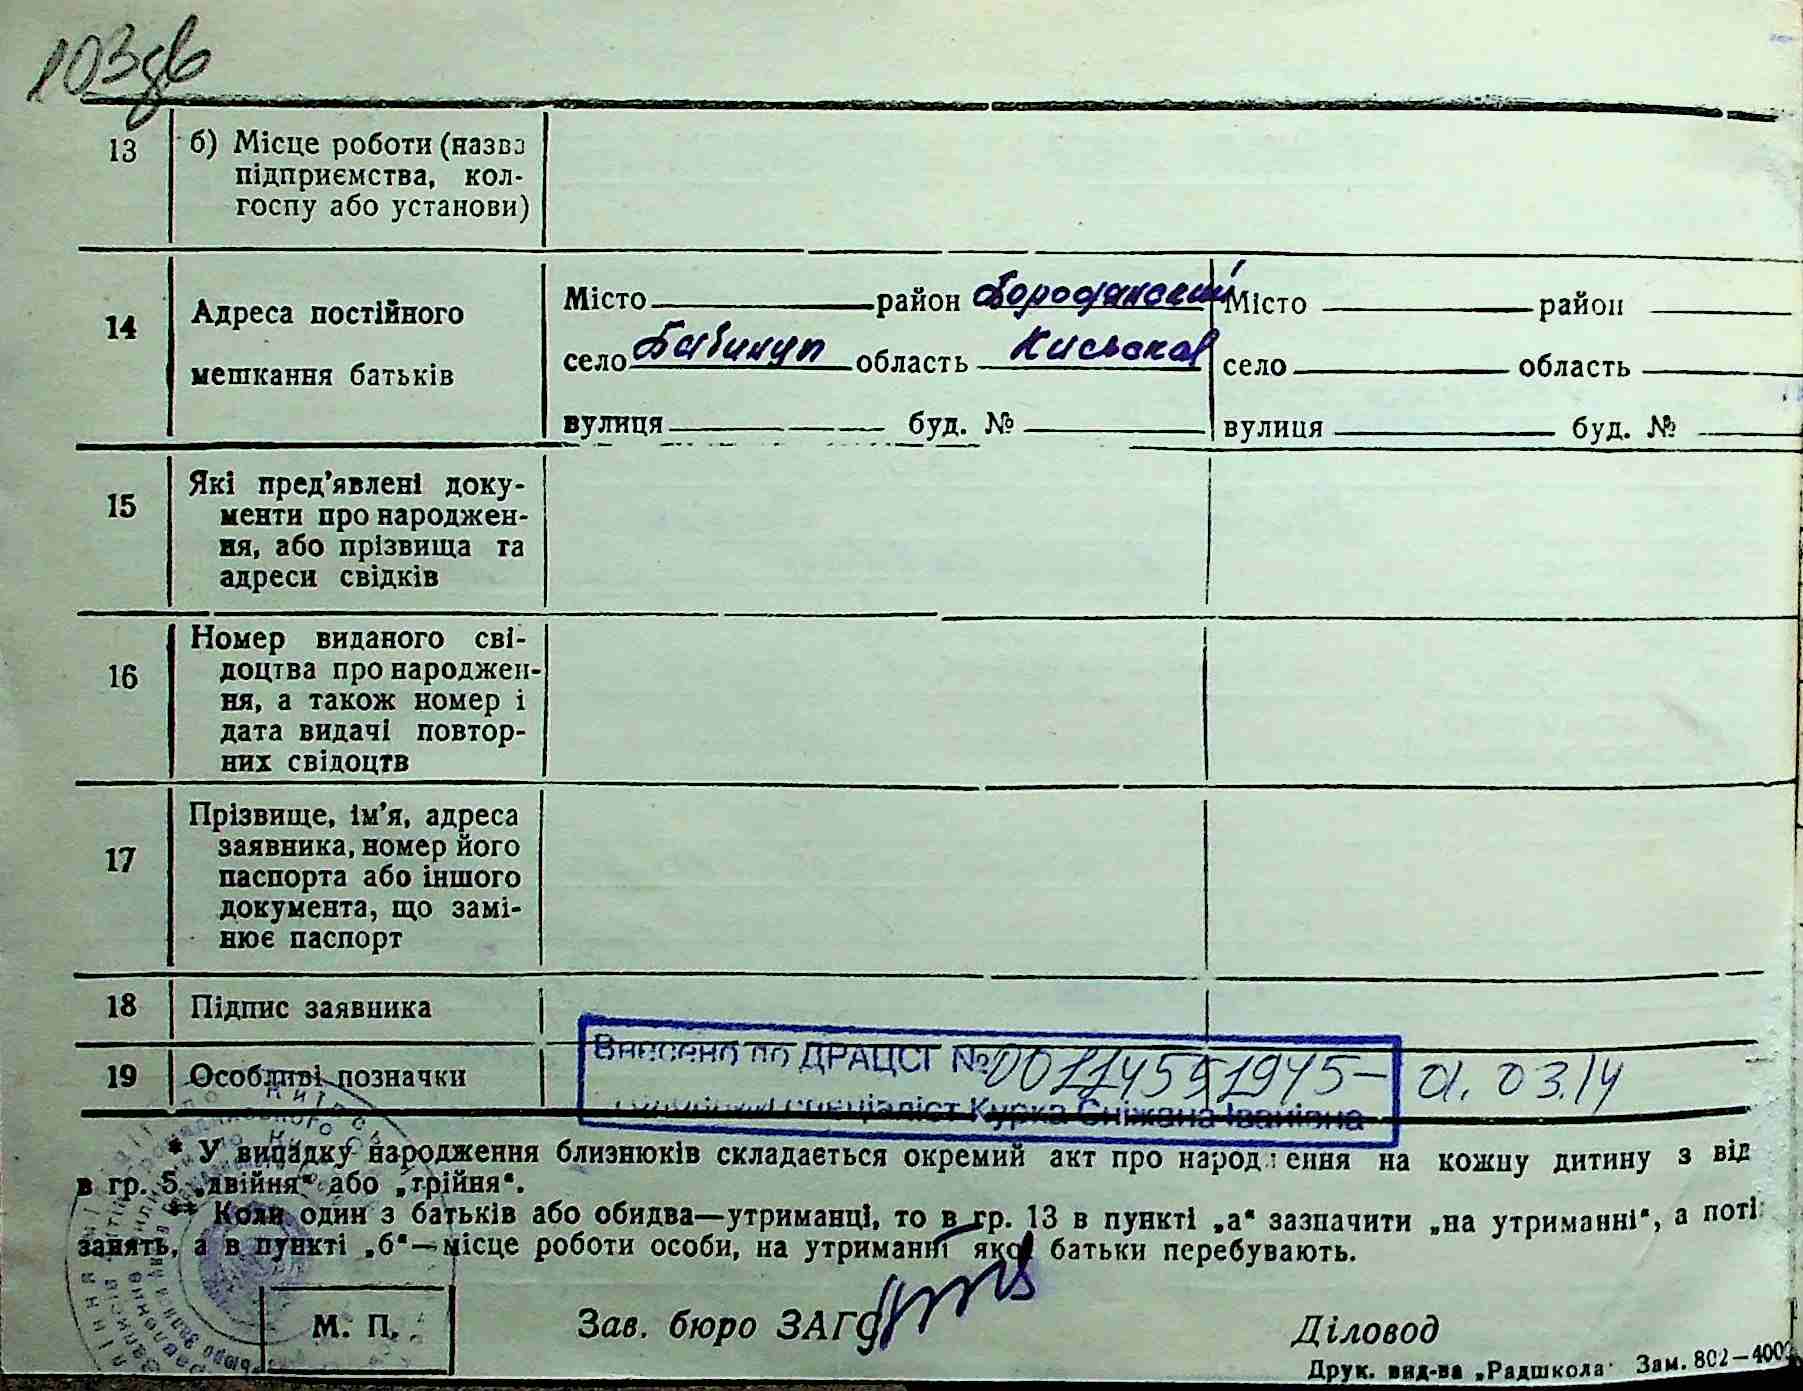 103
13 б) Місце роботи (назва
підприємства, кол-
госпу або установи)
14 Адреса постійного
мешкання батьків
Місто район Бородянський Місто район
село Бабинци область Київська село область
вулиця буд. № вулиця буд. №
15 Які пред'явлені доку-
менти про народжен-
ня, або прізвища та
адреси свідків
16 Номер виданого сві-
доцтва про народжен-
ня, а також номер і
дата видачі повтор-
них свідоцтв
17 Прізвище, ім'я, адреса
заявника, номер його
паспорта або іншого
документа, що замі-
нює паспорт
18 Підпис заявника
19 Особливі позначки
Внесено до ДРАЦСГ № 00114551945- 01.03.14
спеціаліст Курка Сніжана Іванівна
* У випадку народження близнюків складається окремий акт про народження на кожну дитину з від
в гр. 5 „двійня“ або „трійня“.
** Коли один з батьків або обидва—утриманці, то в гр. 13 в пункті „а“ зазначити „на утриманні“, а поті
занять, а в пункті „б“—місце роботи особи, на утриманні якої батьки перебувають.
М. П.
Зав. бюро ЗАГС
Діловод
Друк. вид-ва „Радшкола“ Зам. 802—4000